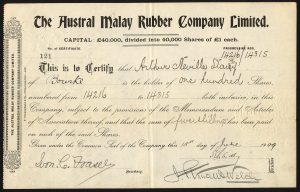 The Austral Malay Rubber Company Limited.
CAPITAL: £40,000, divided into 40,000 Shares of £1 each.
No. OF CERTIFICATE.
PROGRESSIVE NOS.
121
14216/14315
This is to Certify that Arthur Neville
of Bourke is the holder of One hundred Shares
numbered from 14216 to 14315 both inclusive, in this
Company, subject to the provisions of the Memorandum and Articles
of Association thereof, and that the sum of has been paid
on each of the said Shares.
Given under the Common Seal of the Company this 18th day of June 1909